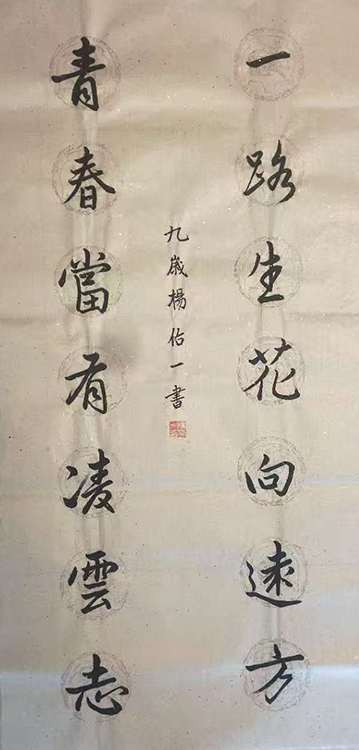 一路生花向遠方
青春當有凌雲志
九歲楊佑一書